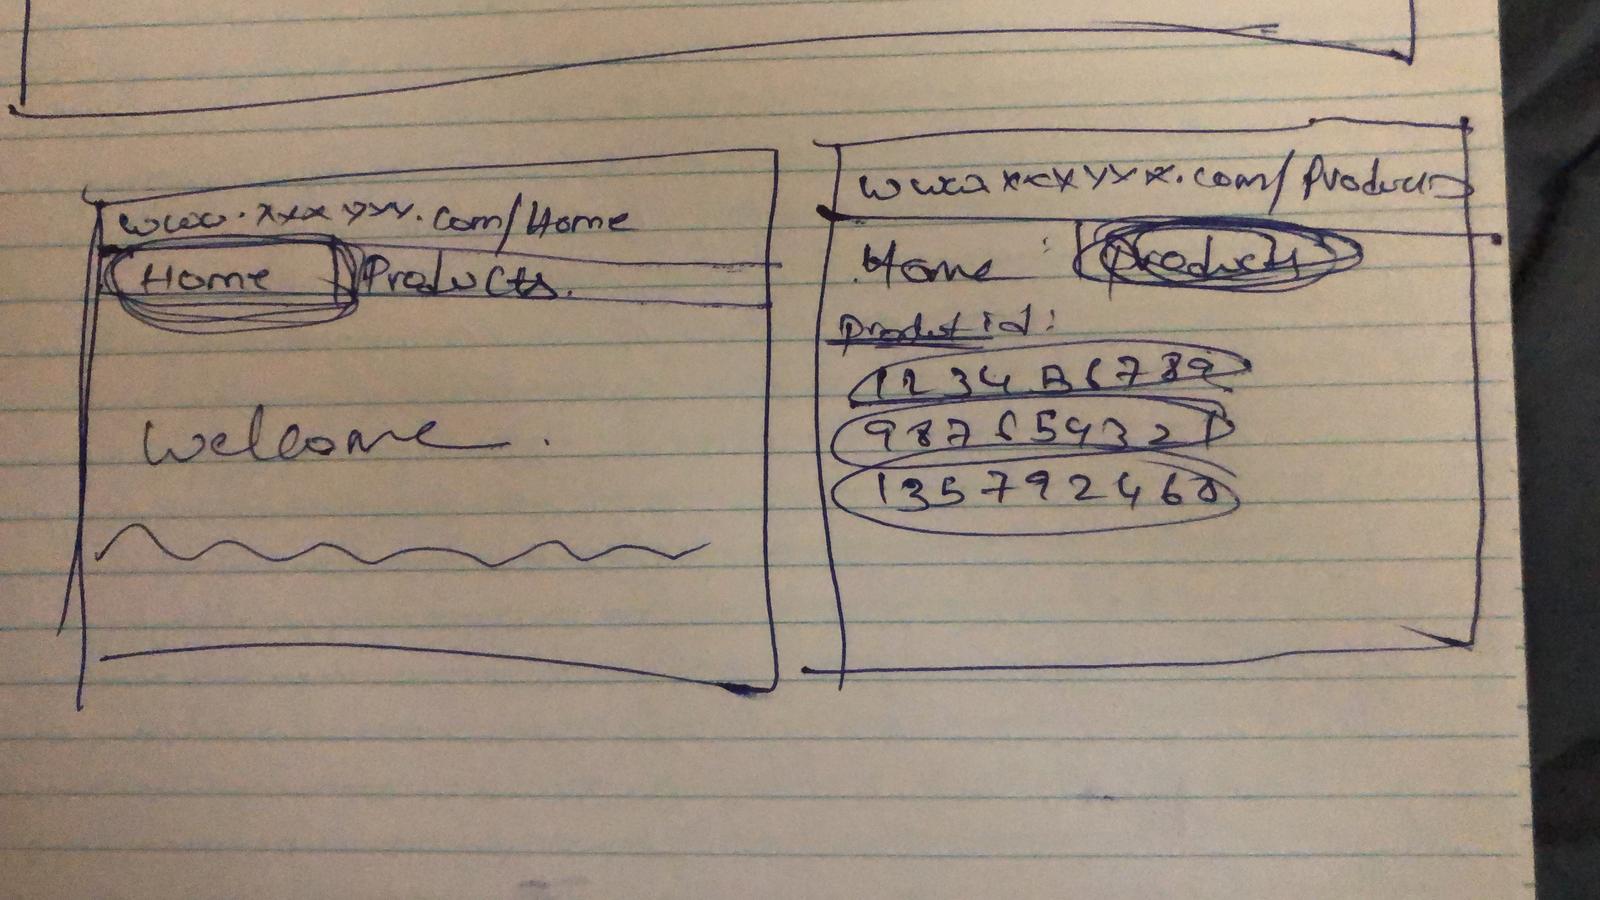 www.xxxyyy.com/Home
Home Products.
Welcome.
www xxxyyx.com/Products
Home Products
Product id:
123456789
987654321
135792460